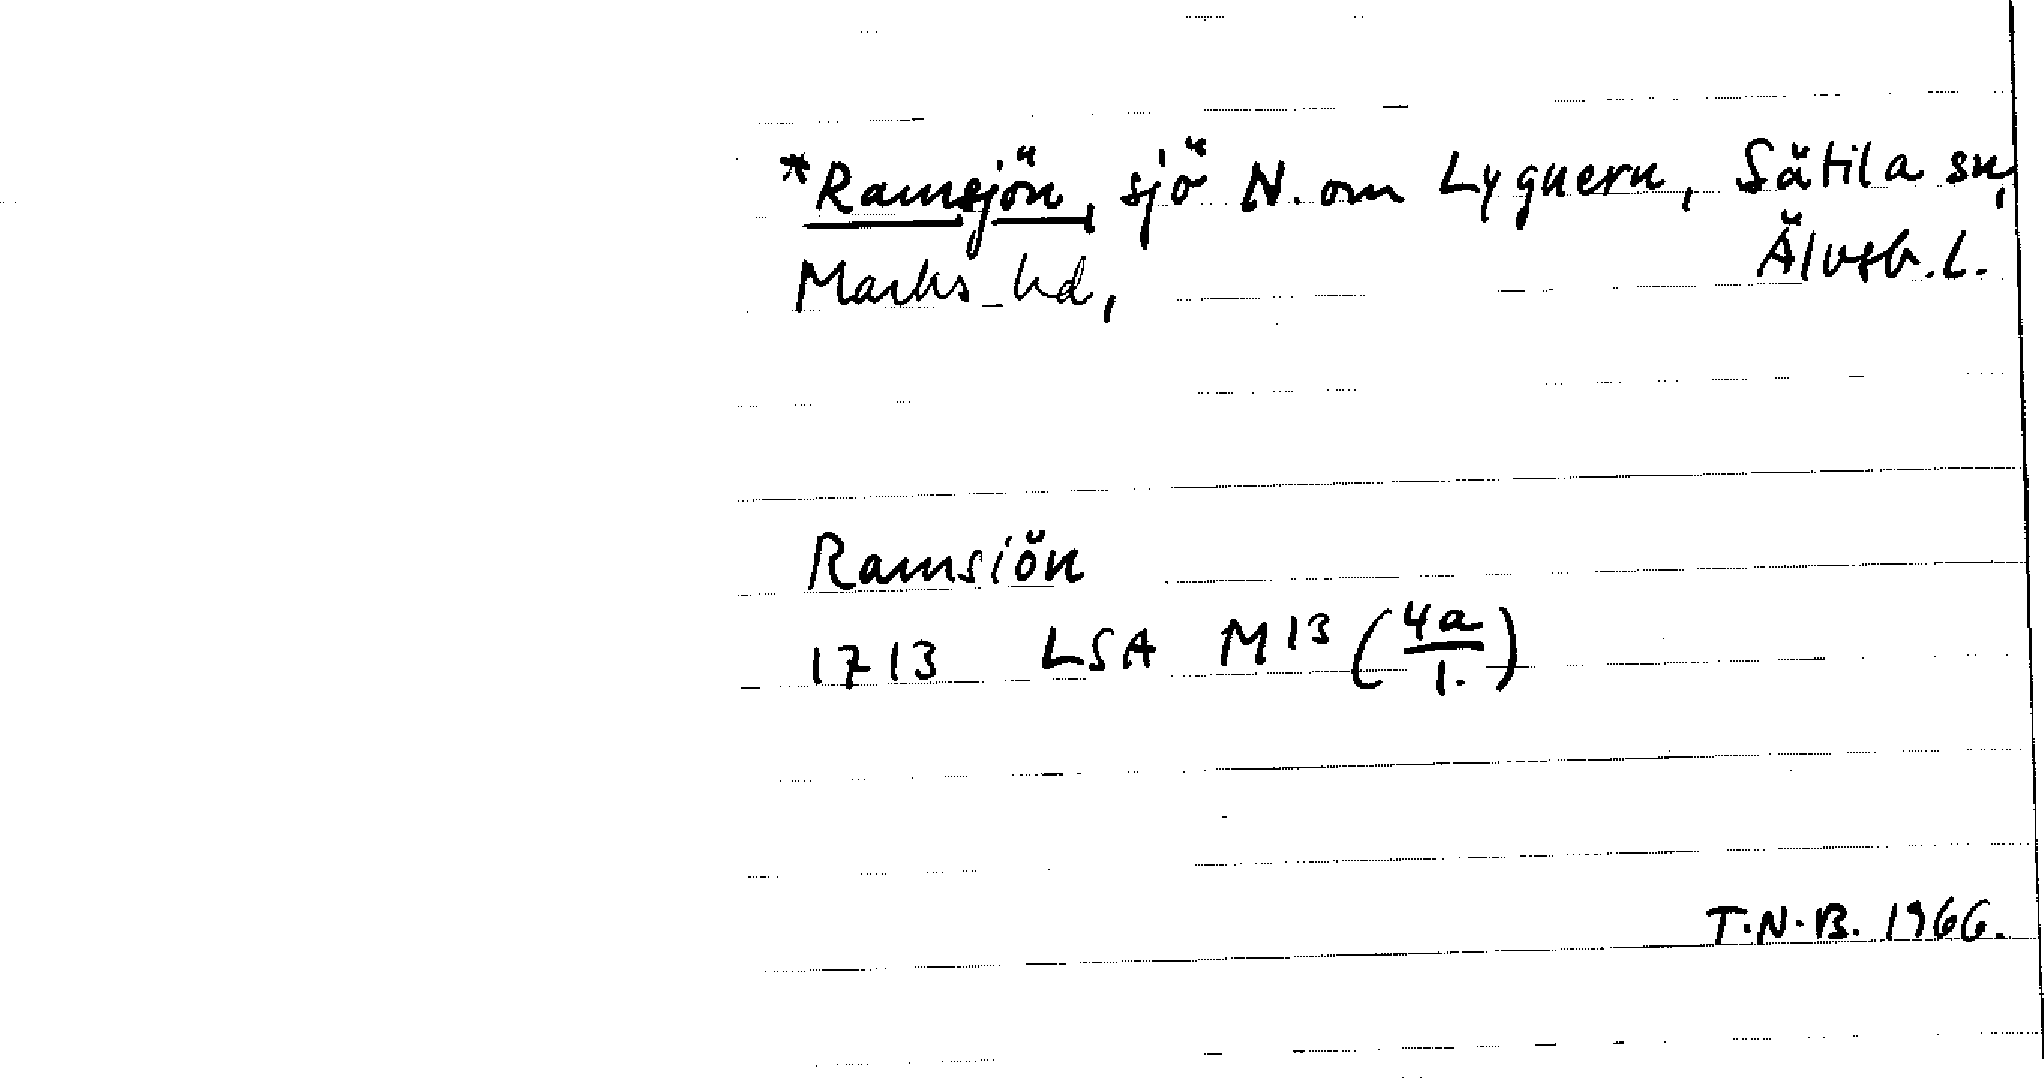 *Ramsjön, sjö N. om Lygnern, Sätila sn,
Marks hd, Älvsb. L.
Ramsiön
1713 LSA M13 (4a/1.)
T.N.B. 1966.